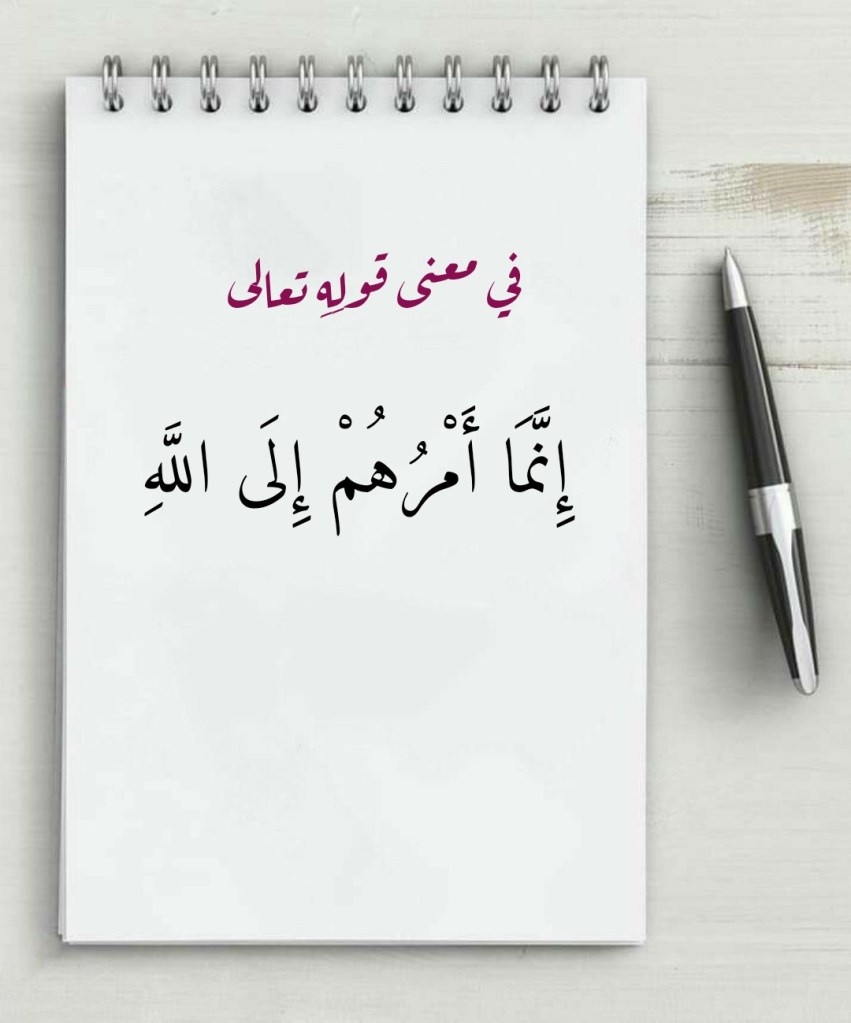 في معنى قولِهِ تعالى
إِنَّمَا أَمْرُهُمْ إِلَى اللَّهِ